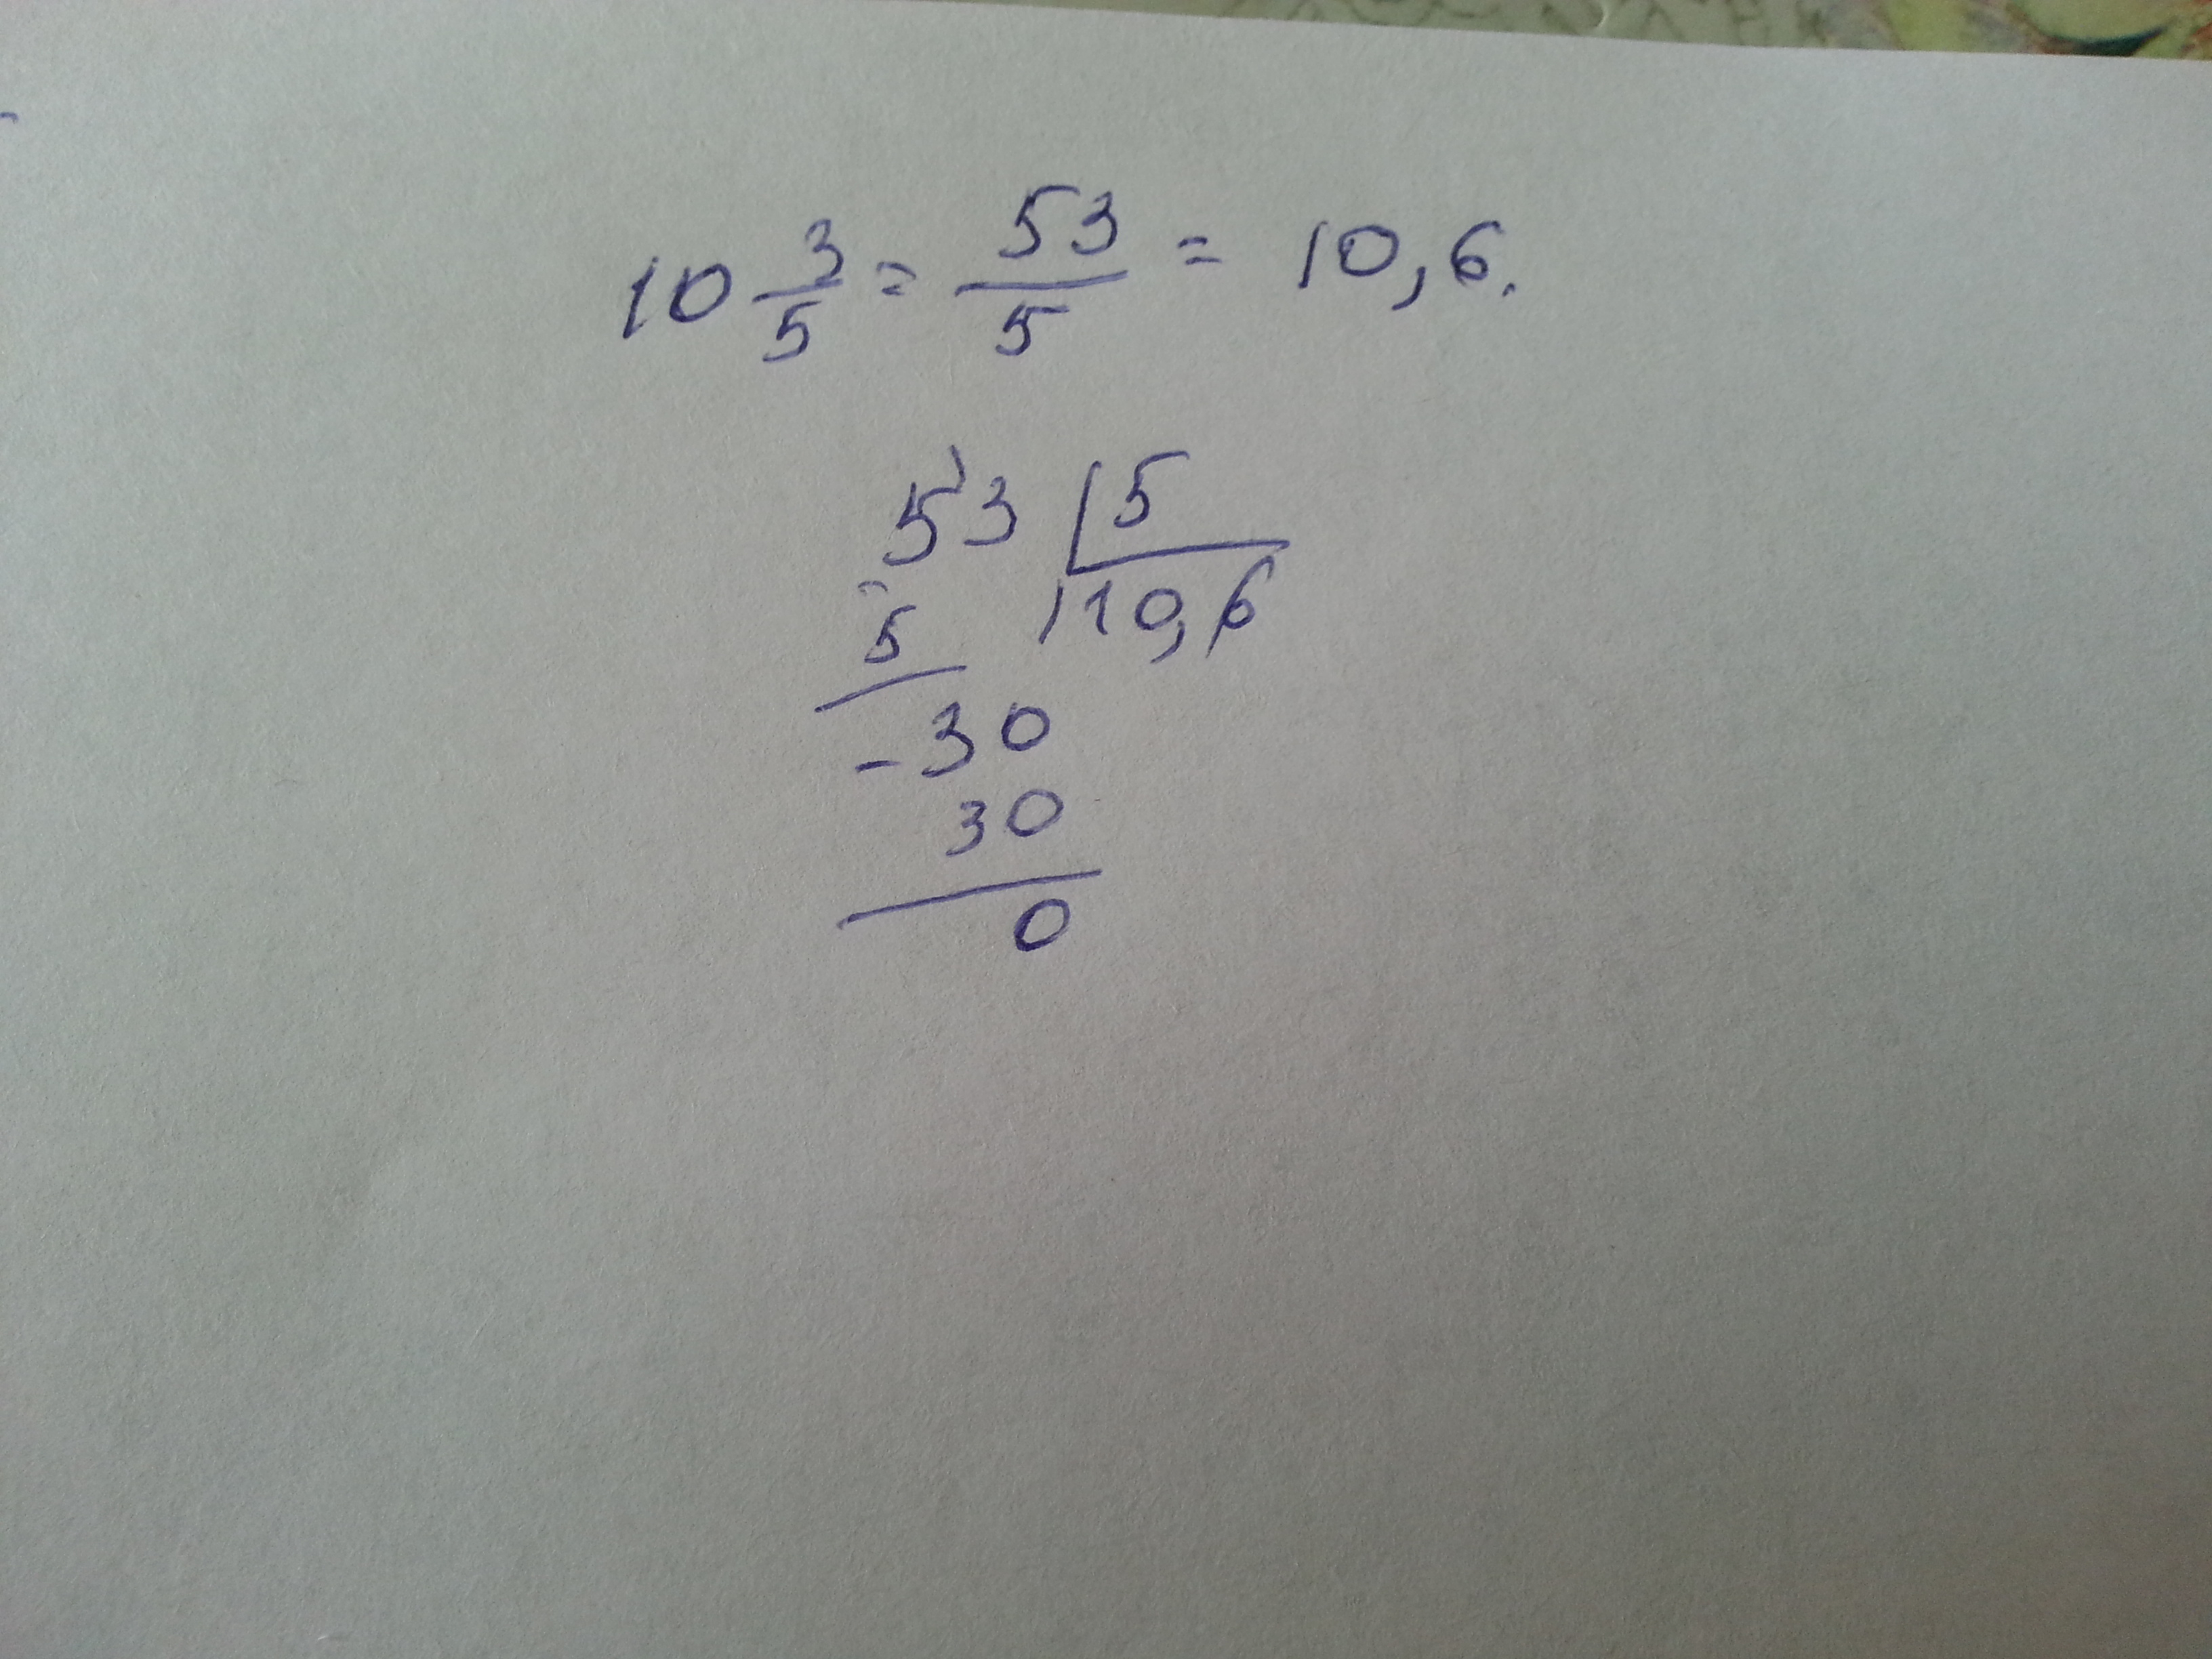 10 3/5 = 53/5 = 10,6.
53 | 5
- 5 | 10,6
- 30
30
0